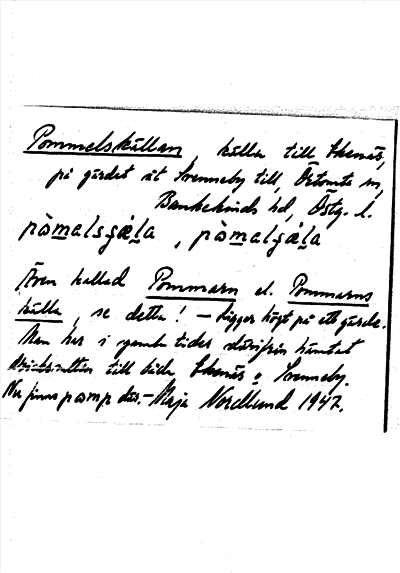 Pommelskällan, källa till Ekenäs,
på gärdet åt Svenneby till, Östomta sn,
Bankekinds hd, Östg. l.
pòmalsçæ̀la, pòmalçæ̀la
Även kallad Pommarn el. Pommarns
källa, se detta! – Ligger högt på ett gärde.
Man har i gamla tider därifrån hämtat
till både Ekenäs o Svenneby.
Nu finns pomp där. – Maja Nordlund 1947.